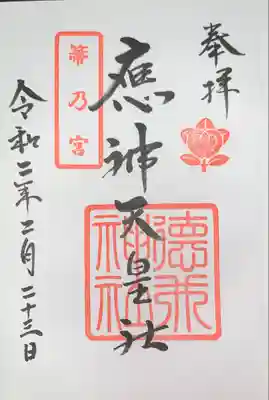 奉拝
應神天皇社
德威神社
箒乃宮
令和二年二月二十三日